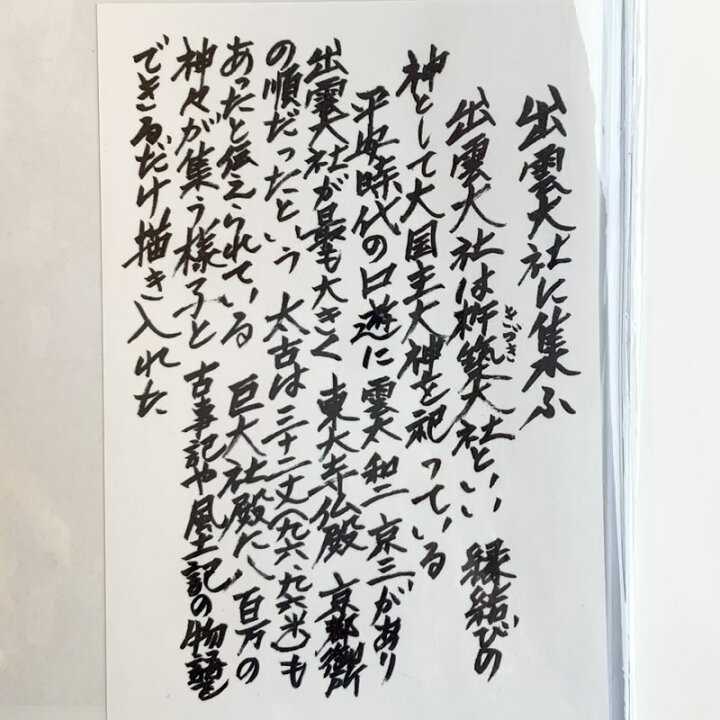 出雲大社に集ふ
出雲大社は杵築大社といい 縁結びの
きづき
神として大国主大神を祀っている
平安時代の口遊に雲太 和二 京三があり
出雲大社が最も大きく 東大寺仏殿 京都御所
の順だったという 太古は三十二丈(九六、九六米)も
あったと伝えられている 巨大社殿に八百万の
神々が集う様子と 古事記や風土記の物語を
できるだけ描き入れた